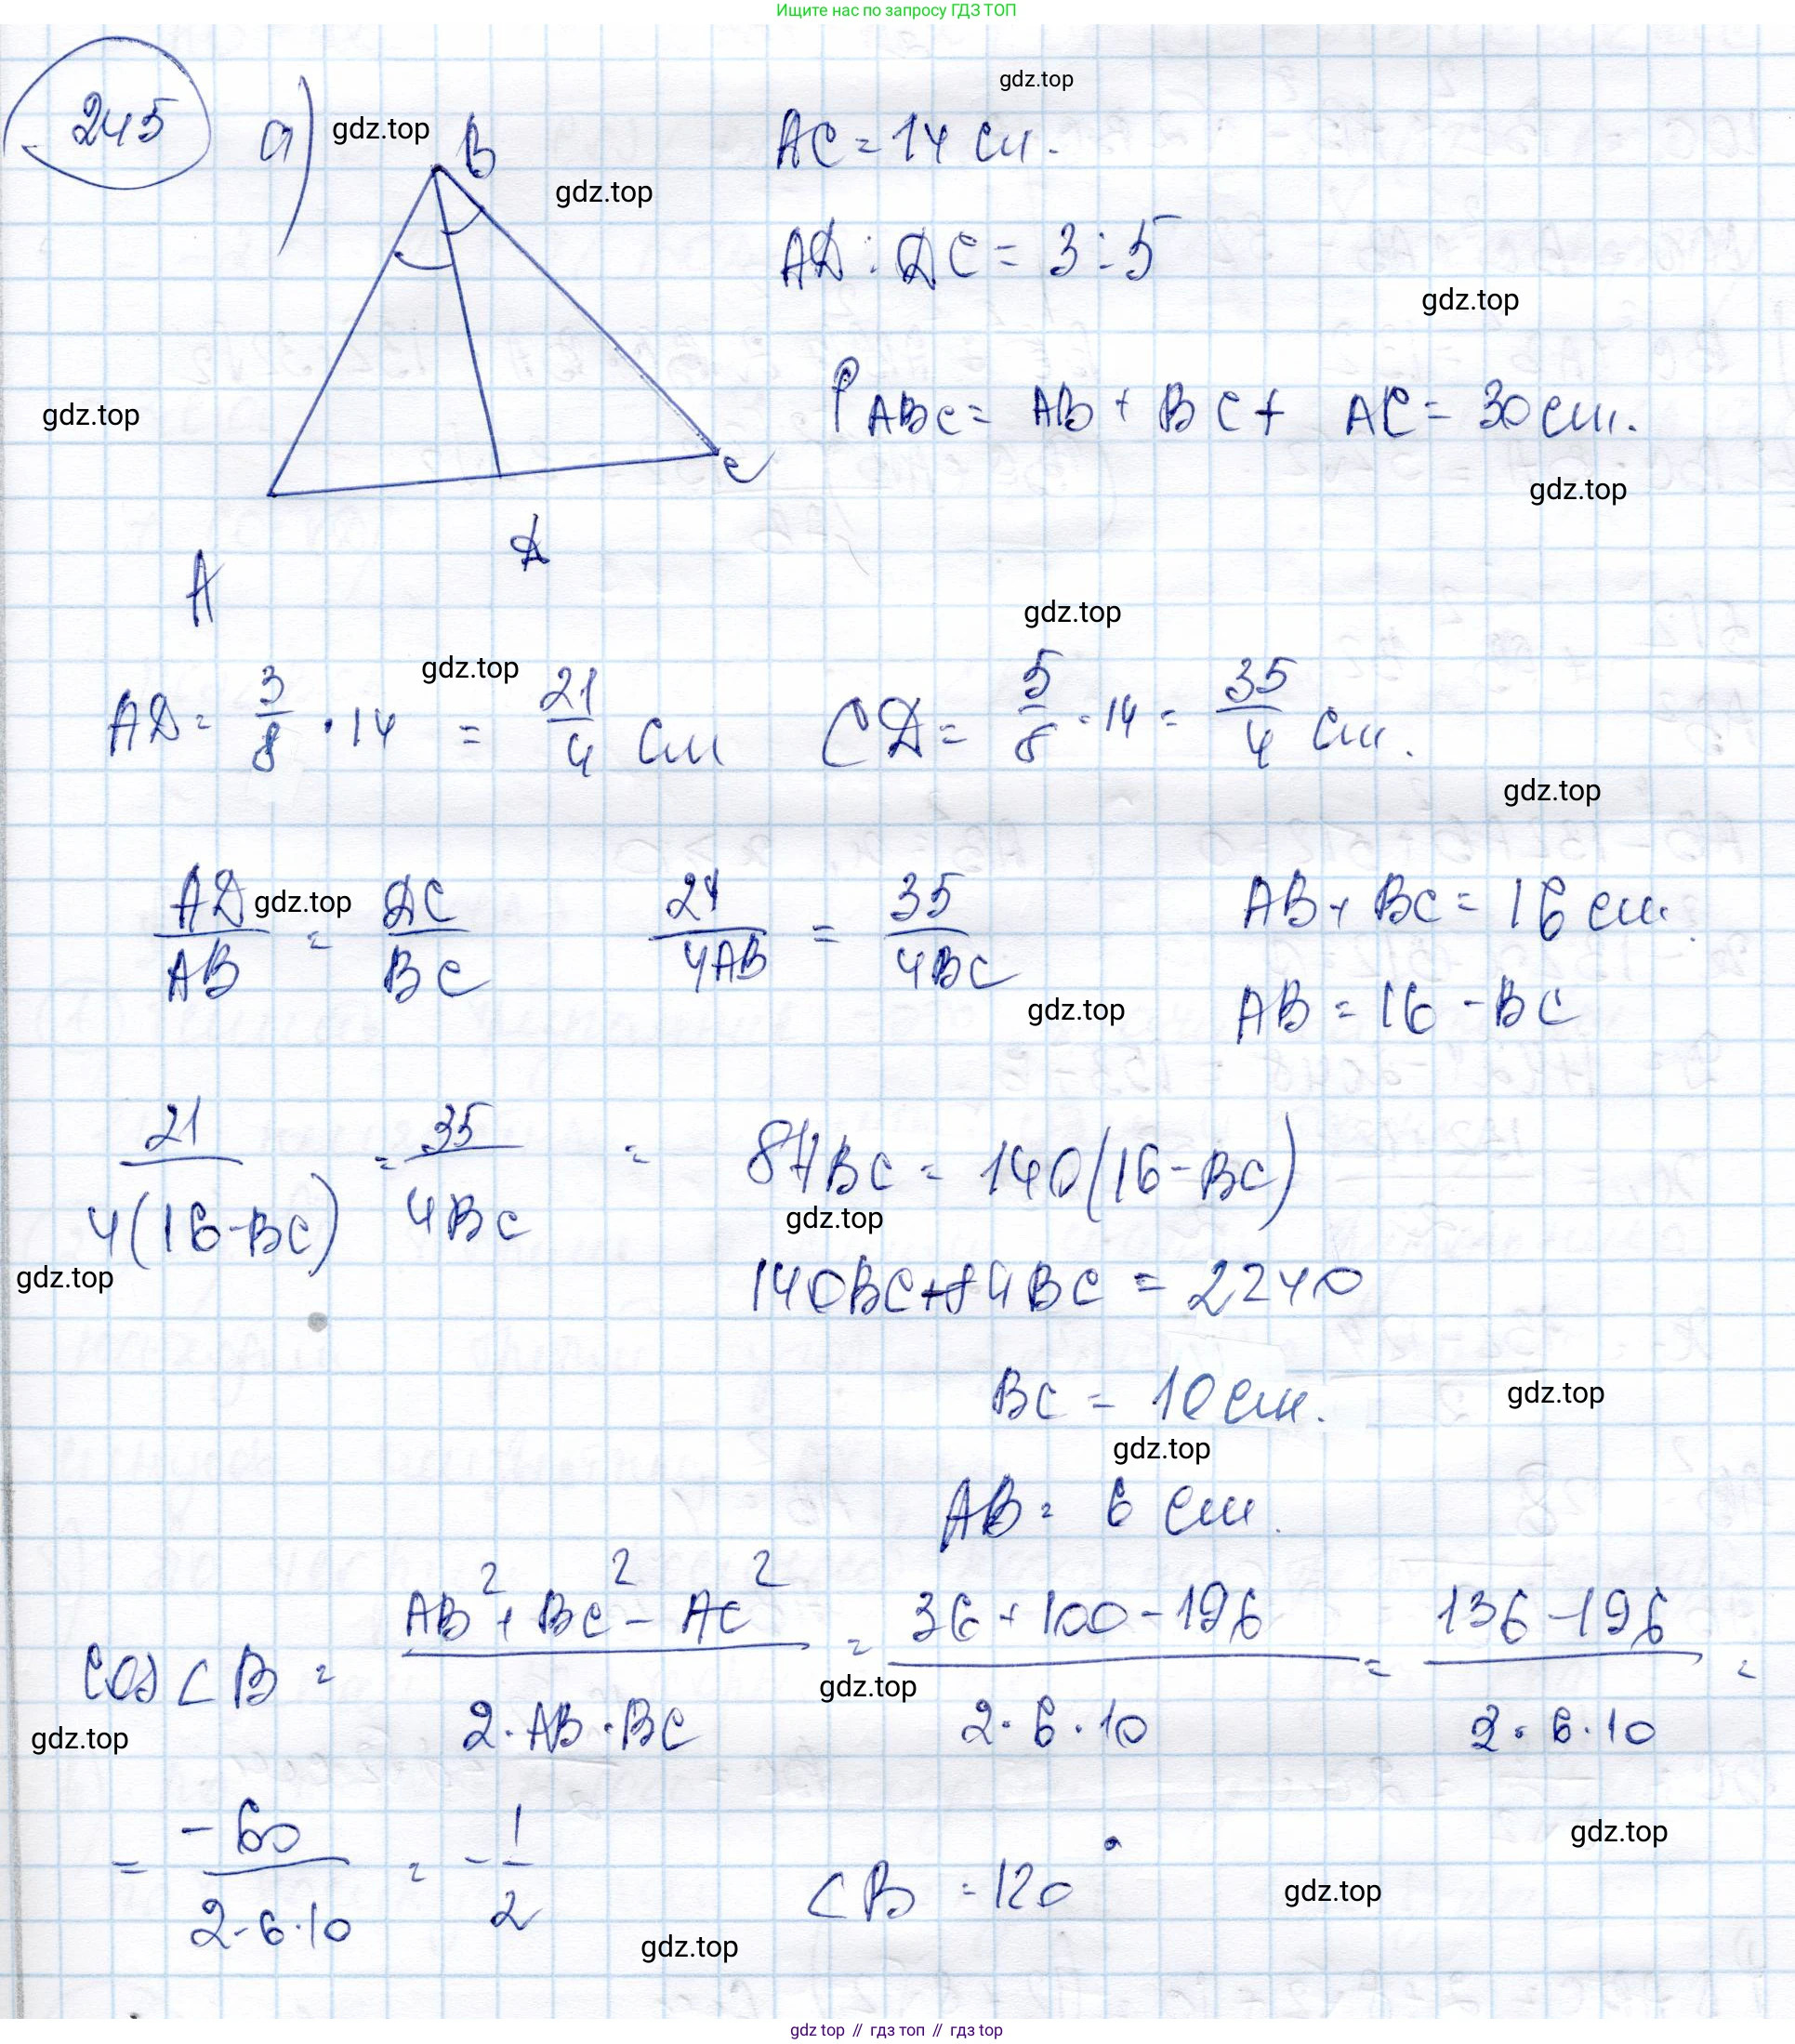 Ищите нас по запросу ГДЗ ТОП
gdz.top
245 а) gdz.top B AC = 14 см.
gdz.top
AD : DC = 3 : 5
gdz.top
gdz.top
P ABC = AB + BC + AC = 30 см.
C
gdz.top
D
A
gdz.top
gdz.top
AD = 3/8 · 14 = 21/4 см CD = 5/8 · 14 = 35/4 см.
gdz.top
AD/AB = DC/BC 21/4AB = 35/4BC AB + BC = 16 см.
gdz.top
AB = 16 - BC
gdz.top
21/4(16-BC) = 35/4BC = 84BC = 140(16-BC)
gdz.top
gdz.top
140BC+84BC = 2240
BC = 10 см.
gdz.top
gdz.top
AB = 6 см.
cos ∠B = AB² + BC² - AC²/2·AB·BC = 36 + 100 - 196/2·6·10 = 136 - 196/2·6·10 =
gdz.top
gdz.top
= -60/2·6·10 = -1/2 ∠B = 120°
gdz.top
gdz.top
gdz.top
gdz top // гдз топ // gdz top